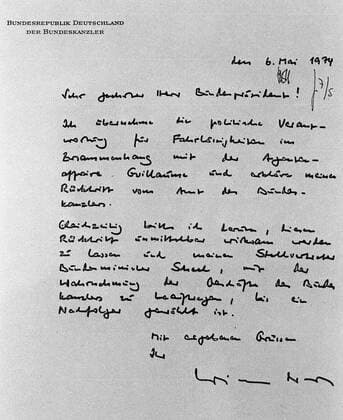 BUNDESREPUBLIK DEUTSCHLAND
DER BUNDESKANZLER
den 6. Mai 1974
7/5
Sehr geehrter Herr Bundespräsident!
Ich übernehme die politische Verant-
wortung für Fahrlässigkeiten im
Zusammenhang mit der Agenten-
affaire Guillaume und erkläre meinen
Rücktritt vom Amt des Bundes-
kanzlers.
Gleichzeitig bitte ich darum, diesen
Rücktritt unmittelbar wirksam werden
zu lassen und meinen Stellvertreter,
Bundesminister Scheel, mit der
Wahrnehmung der Geschäfte des Bundes
kanzlers zu beauftragen, bis ein
Nachfolger gewählt ist.
Mit ergebenen Grüssen
Ihr